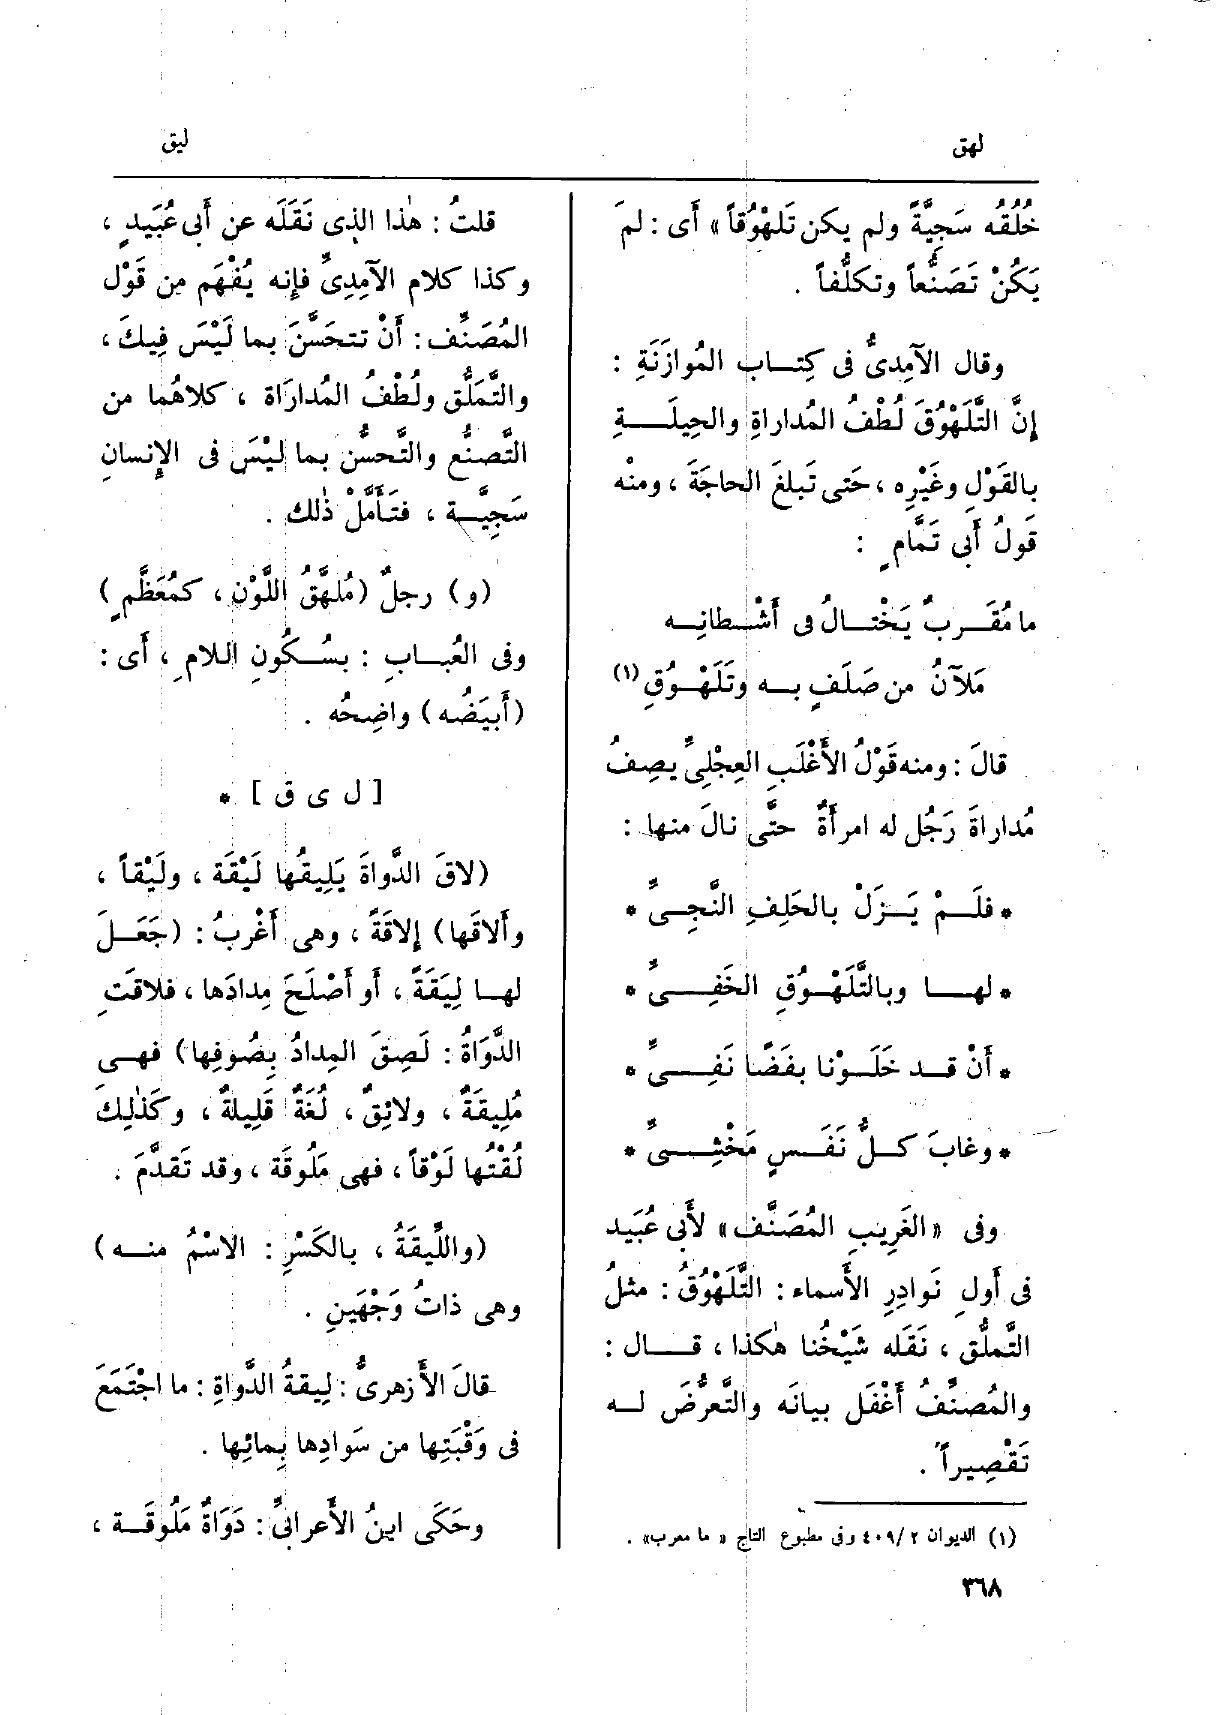 لهق
ليق
خُلُقُه سَجِيَّةً ولم يكن تَلَهْوُقاً» أَى : لمَ
يَكُنْ تَصَنُّعاً وتكلُّفاً .
وقال الآمِدِىُّ فى كِتــاب المُوازَنَةِ :
إِنَّ التَّلَهْوُقَ لُطْفُ المُداراةِ والحِيلَــةِ
بالقَوْلِ وغَيْرِه ، حَتى تَبلغَ الحاجَةَ ، ومنْه
قَولُ أَبى تَمَّامٍ :
ما مُقَــرِبٌ يَخْتــالُ فى أَشْـطانِــه
مَلآنُ من صَلَفٍ بــه وتَلَهْــوُقِ(١)
قالَ : ومنه قَوْلُ الأَغْلَبِ العِجْلِىِّ يصِفُ
مُداراةَ رَجُلٍ له امرأَةٌ حتَّى نالَ منها :
* فلَــمْ يَــزَلْ بالحَلِفِ النَّجِــىِّ *
* لهــا وبالتَّلَهْــوُقِ الخَفِــىِّ *
* أَنْ قــد خَلَــوْنا بفَضًا نَفِــىِّ *
* وغابَ كــلُّ نَفَــسٍ مَخْشِــىِّ *
وفى «الغَرِيبِ المُصَنَّف» لأَبى عُبَيد
فى أَولِ نَوادِرِ الأَسماء : التَّلَهْوُقُ : مثلُ
التَّملُّق ، نَقَله شَيْخُنا هٰكذا ، قــال :
والمُصنِّفُ أَغْفَل بيانَه والتَّعرُّضَ لــه
تَقْصِيراً .
(١) الديوان ٢ /٤٠٩ وفى مطبوع التاج « ما معرب» .
٣٦٨
قلتُ : هٰذا الذِى نَقَلَه عن أَبى عُبَيدٍ ،
وكذا كلام الآمِدِىِّ فإِنه يُفْهَم مِن قَوْل
المُصَنِّف : أَنْ تتحَسَّنَ بما لَيْسَ فِيكَ ،
والتَّمَلُّق ولُطْفُ المُدارَاة ، كلاهُما من
التَّصنُّع والتَّحسُّن بما ليْسَ فى الإِنسانِ
سَجِيَّــة ، فتَأَمَّلْ ذٰلك .
(و) رجلٌ (مُلهَّقُ اللَّوْنِ ، كمُعَظَّمٍ)
وفى العُبــابِ : بسُــكُونِ اللامِ ، أَى :
(أَبيَضُه) واضِحُه .
[ ل ى ق ] *
(لاقَ الدَّواةَ يَلِيقُها لَيْقَة ، ولَيْقاً ،
وأَلاقَها) إِلاقَةً ، وهى أَغْربُ : (جَعَــلَ
لهــا لِيَقَةً ، أَو أَصْلَحَ مِدادَها ، فلاقَتِ
الدَّوَاةُ : لَصِقَ المِدادُ بِصُوفِها) فهــى
مُلِيقَةٌ ، ولائِقٌ ، لُغَةٌ قَلِيلةٌ ، وكَذٰلِكَ
لُقْتُها لَوْقاً ، فهى مَلُوقَة ، وقد تَقدَّمَ .
(واللِّيقَةُ ، بالكَسْرِ : الاسْمُ منــه)
وهى ذاتُ وَجْهَينِ .
قالَ الأَزهرىُّ : لِيقةُ الدَّواةِ : ما اجْتَمَعَ
فى وَقْبَتِها من سَوادِها بِمائِها .
وحَكَى ابنُ الأَعرابىِّ : دَوَاةٌ مَلُوقَــة ،